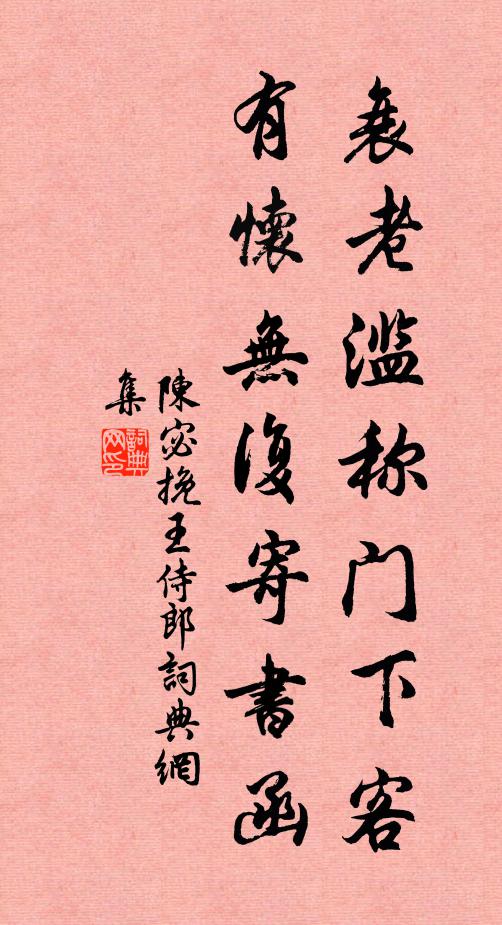 衰老滥称门下客
有懷無復寄書函
陳宓挽王侍郎詞典網
集
詞典
网印